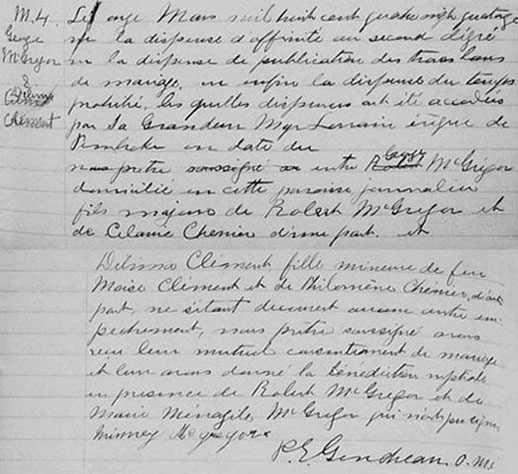 M. 4.
George
McGregor
&
Delima
Clément
Le onze Mars mil huit cent quatre vingt quatorze
vu la dispense d'affinité au second degré
vu la dispense de publication des trois bans
de mariage, vu enfin la dispense du temps
prohibé, les quelles dispenses ont été accordés
par Sa Grandeur Mgr Lorrain évêque de
Pembroke en date du
nous prêtre soussigné entre George McGregor
domicilié en cette paroisse journalier
fils majeur de Robert McGregor et
de Célanie Chenier d'une part, et
Délima Clément, fille mineure de feu
Moïse Clément et de Philomène Chénier, d'autre
part, ne s'étant découvert aucun autre em-
pêchement, nous prêtre soussigné avons
reçu leur mutuel consentement de mariage
et leur avons donné la bénédiction nuptiale
en présence de Robert McGregor et de
Marie McGregor qui n'ont pu signer
Minney Mcgregor
P. E. Gendreau O.M.I